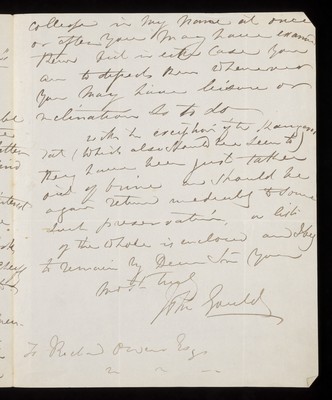 College in my name at once
or after you may have examined
them but in either case you
are to dissect them whenever
you may have leisure or
inclination so to do
with the exception of the Kangaroo
Rat (which also should be seen to)
they have been just taken
out of brine and should be
again returned immediately to some
such preservative. a list
of the whole is enclosed and I beg
to remain My Dear Sir Yours
most truly
John Gould
To Richard Owen Esqr